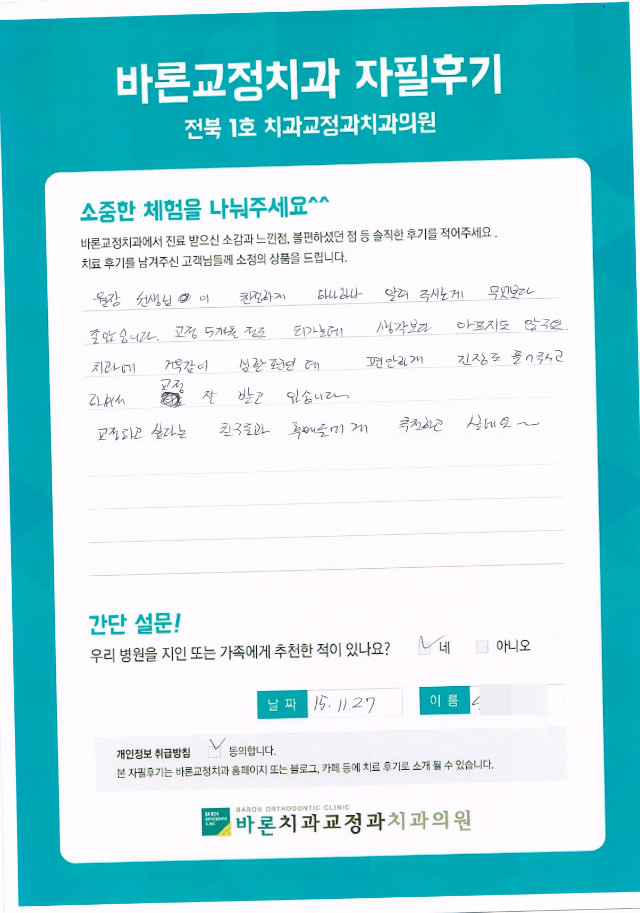 바론교정치과 자필후기
전북 1호 치과교정과치과의원
소중한 체험을 나눠주세요^^
바론교정치과에서 진료 받으신 소감과 느낀점, 불편하셨던 점 등 솔직한 후기를 적어주세요 .
치료 후기를 남겨주신 고객님들께 소정의 상품을 드립니다.
원장 선생님이 친절하게 하나하나 알려 주시는게 무엇보다
좋았습니다. 교정 5개월 정도 되가는데 생각보다 아프지도 않구요.
치과에 거부감이 심한편인데 편안하게 긴장도 풀어주시고
하셔서 교정 잘 받고 있습니다
교정하고 싶다는 친구들과 후배들에게 추천하고 싶네요~
간단 설문!
우리 병원을 지인 또는 가족에게 추천한 적이 있나요? 네 아니오
날 짜 15. 11. 27 이 름
개인정보 취급방침 동의합니다.
본 자필후기는 바론교정치과 홈페이지 또는 블로그, 카페 등에 치료 후기로 소개 될 수 있습니다.
BARON ORTHODONTIC CLINIC
바론치과교정과치과의원